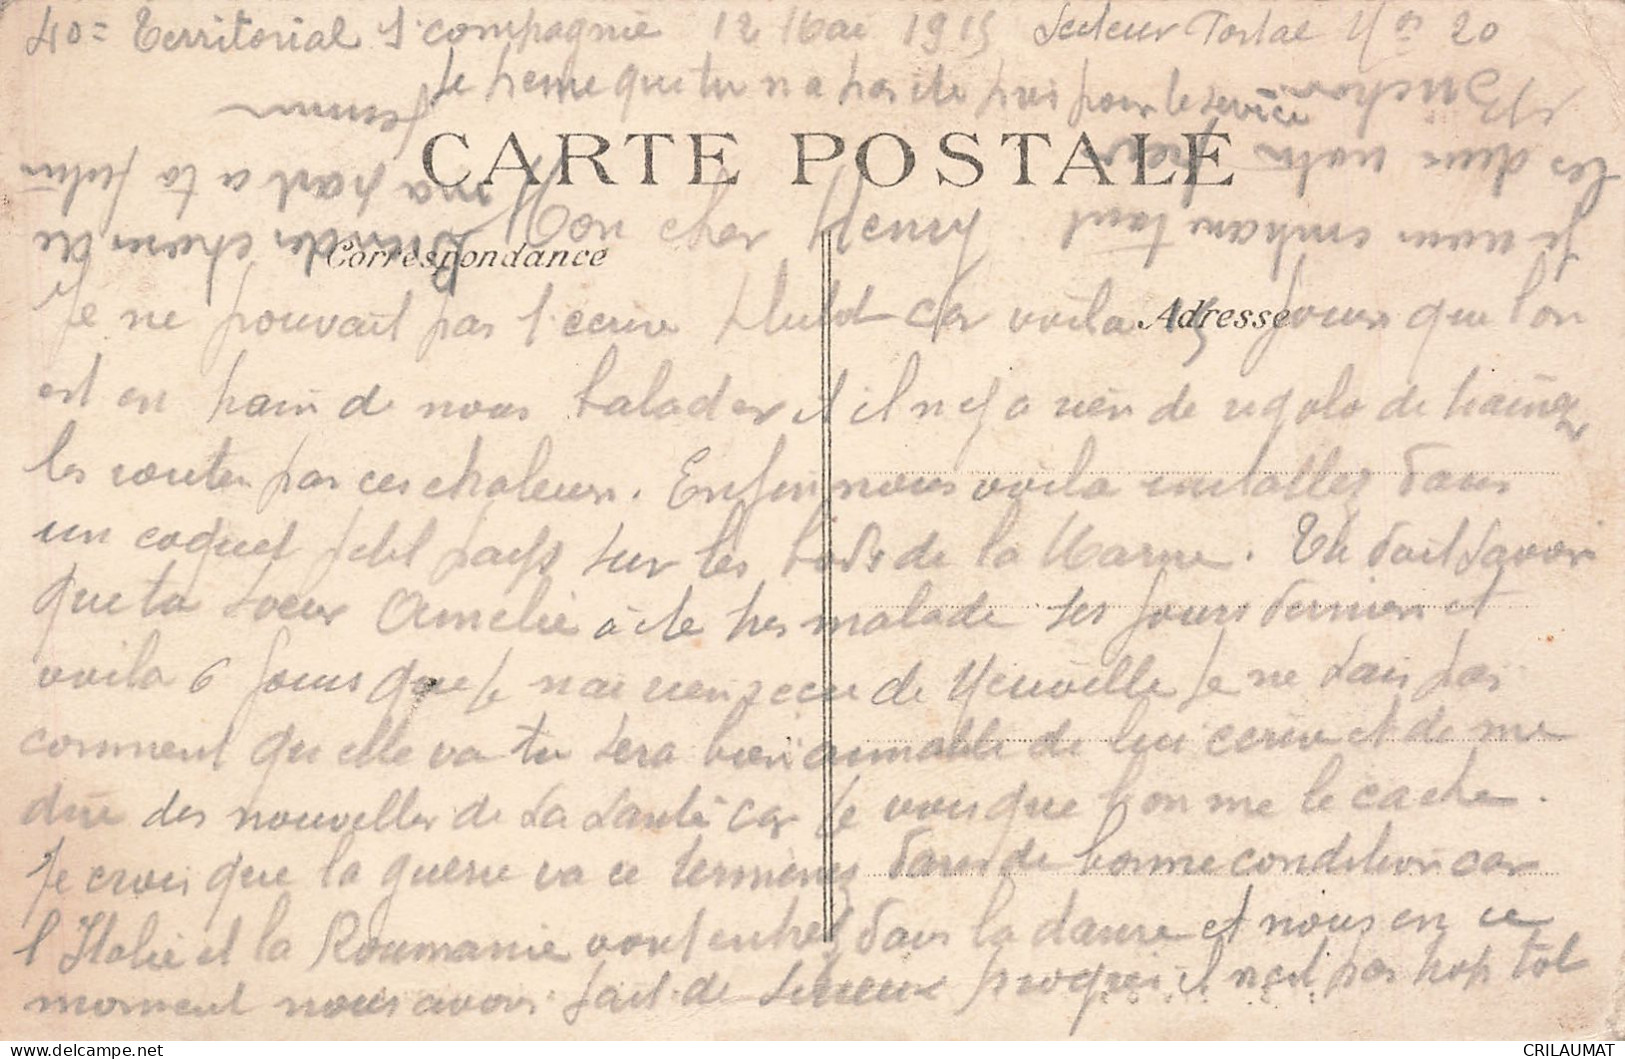 40e Territorial 1e compagnie 12 Mai 1915 Secteur Postal No 20
Je pense que tu n a pas ete pris pour le service
CARTE POSTALE
Correspondance
Adresse
Mon cher Henry
Je ne pouvait pas t'ecrire plutot car voila 15 jours que l on
est en train de nous balader et il n y a rien de rigolo de trainez
les routes par ces chaleurs. Enfin nous voila installez dans
un coquet petit pays sur les bords de la Marne. Tu doit savoir
que ta soeur Amelie à ete tres malade ses jours derniers et
voila 6 jours que je n ai rien recu de Neuville Je ne sais pas
comment qu elle va tu sera bien aimable de lui ecrire et de me
dire des nouvelles de sa santé car je vois que l on me le cache.
Je crois que la guerre va ce terminez dans de bonne condition car
l Italie et la Roumanie vont entrez dans la danse et nous en ce
moment nous avons fait de serieux progres il n est pas trop tot
Je vous embrasse tous
les deux votre frere
Bien des choses de
ma part a ta future
femme